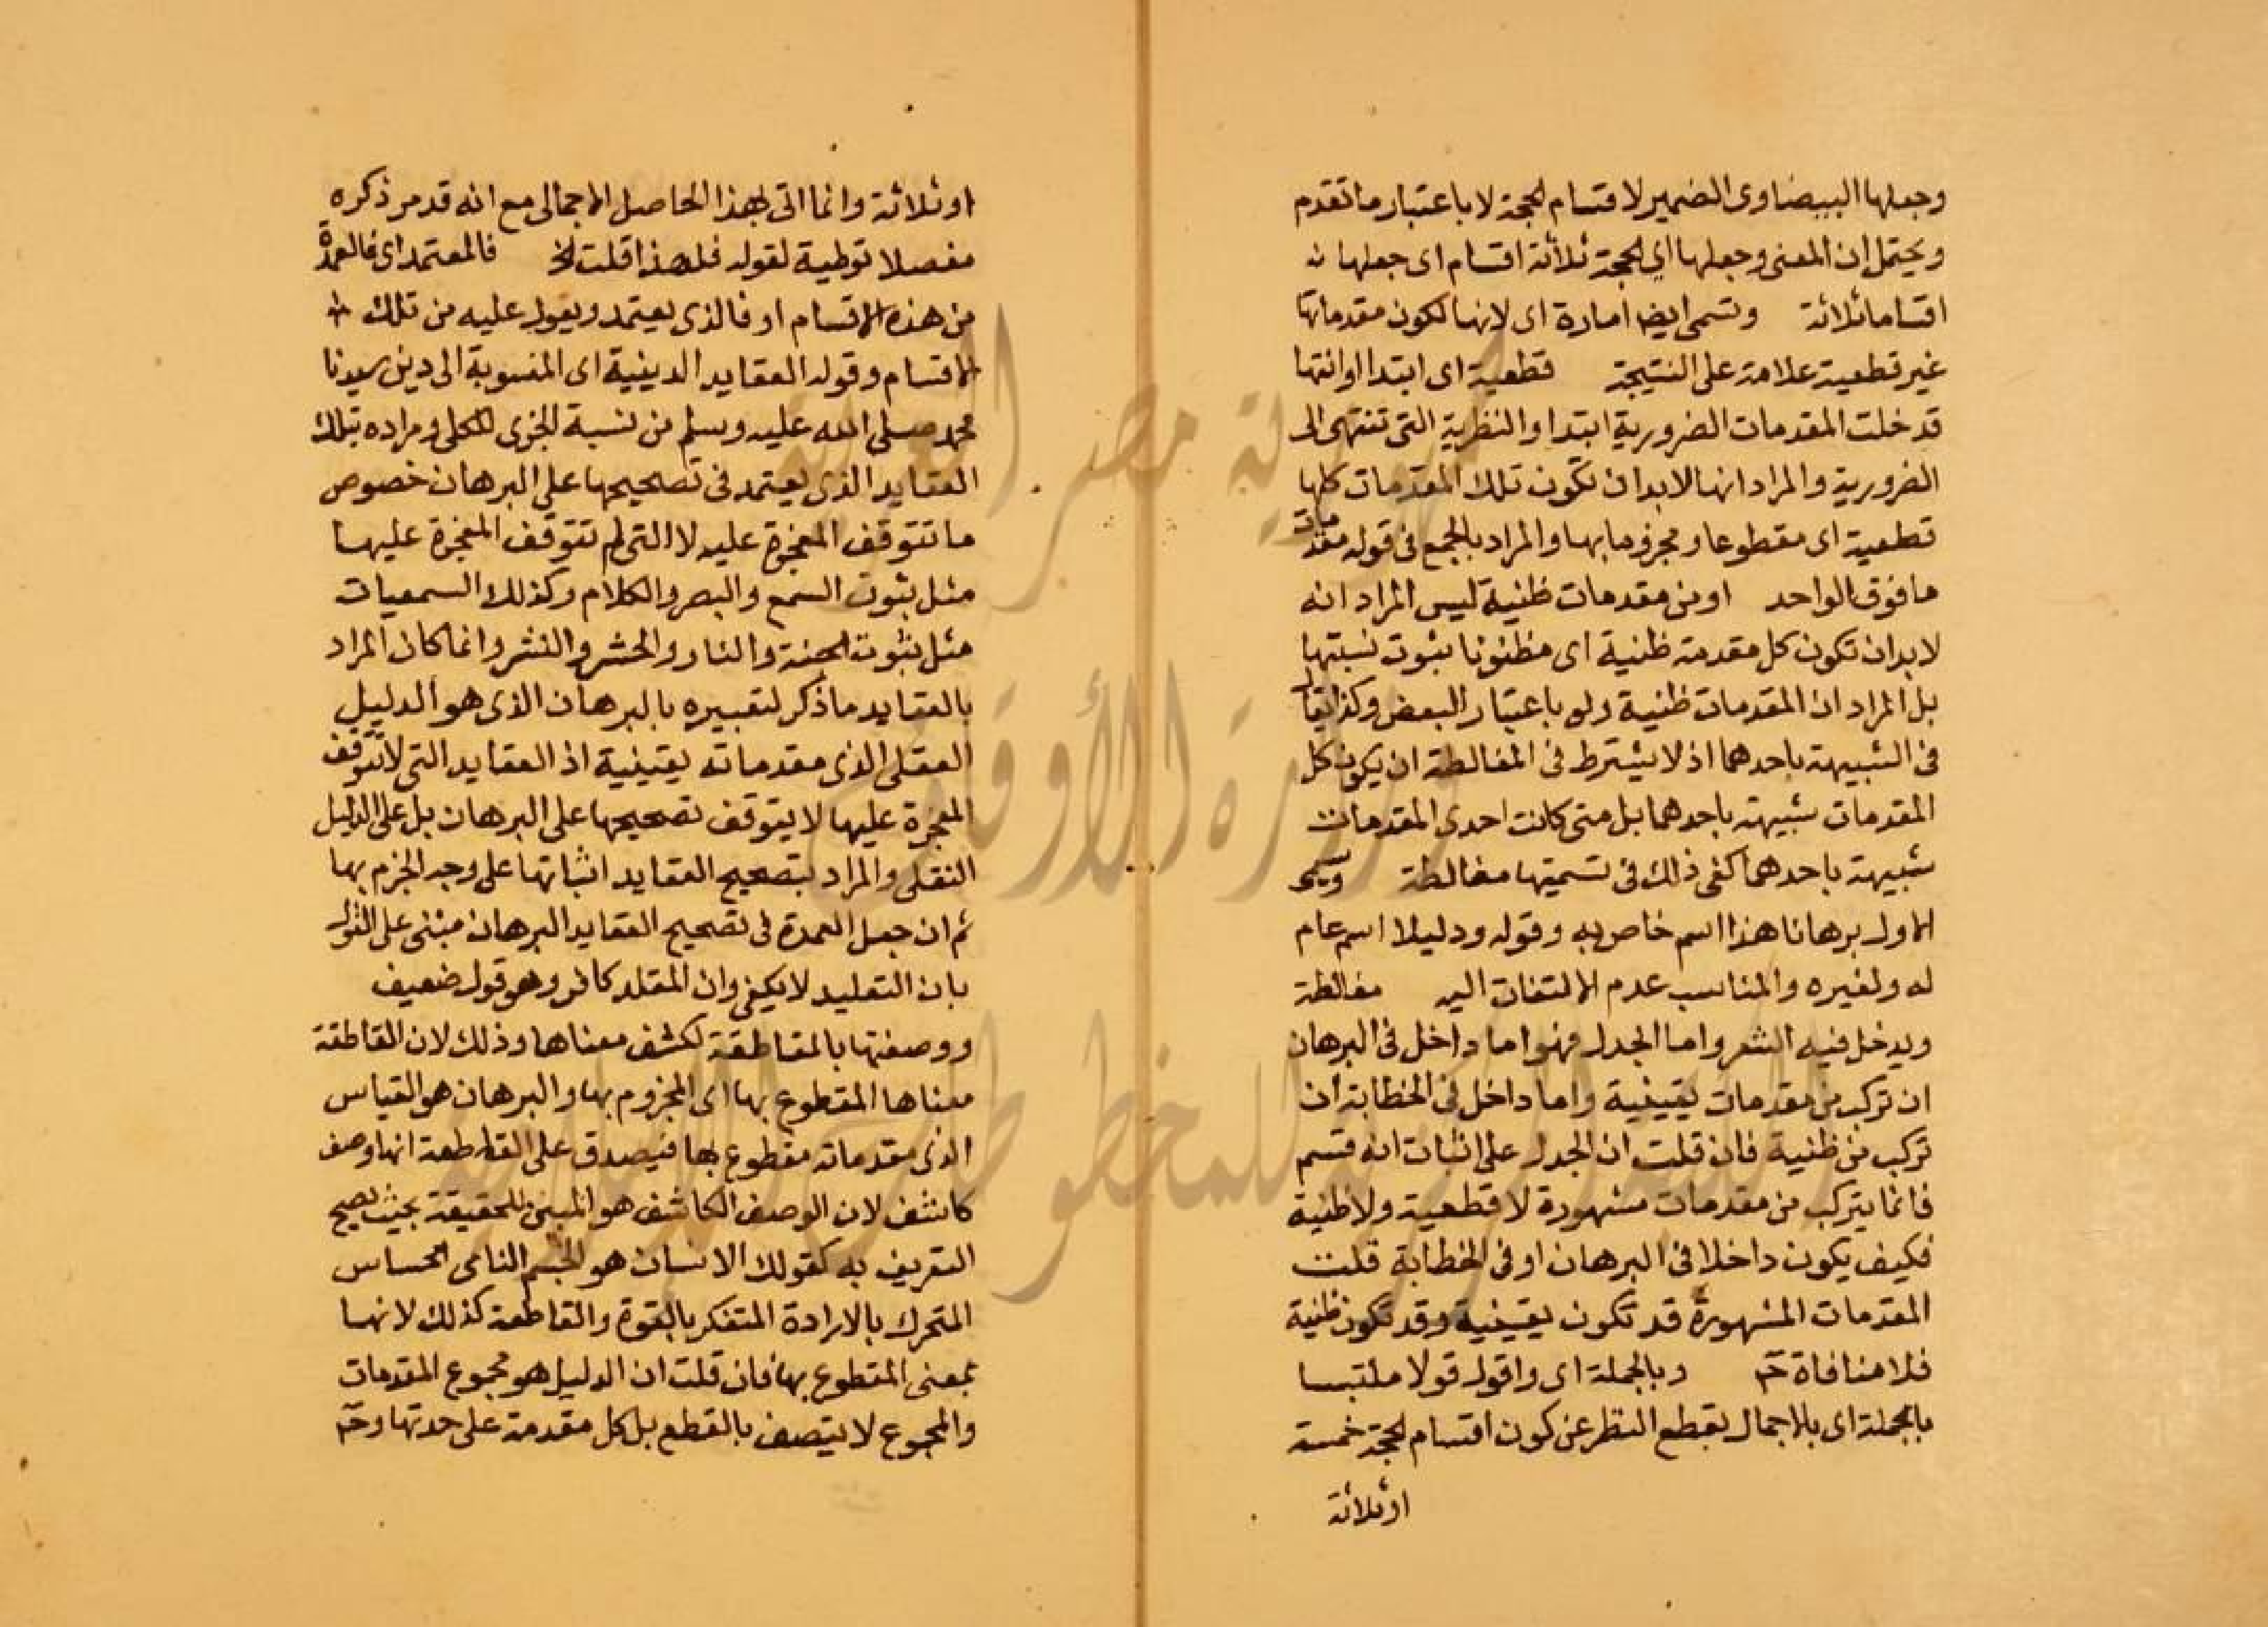 وجعلها البيضاوى الضمير لاقسام الحجة لا باعتبار ما تقدم
ويحتمل ان المعنى وجعلها اي الحجة ثلاثة اقسام اى جعلها
اقساما ثلاثة وتسمى ايضا امارة اى لانها لكون مقدماتها
غير قطعية علامة على النتيجة قطعية اى ابتدا او انتها
فدخلت المقدمات الضرورية ابتدا والنظرية التى تنتهى الى
الضرورية والمراد انها لابد ان تكون تلك المقدمات كلها
قطعية اى مقطوعا ومجزوما بها والمراد بالجمع فى قوله مقدمات
ما فوق الواحد او من مقدمات ظنية ليس المراد انه
لابد ان تكون كل مقدمة ظنية اى مظنونا بثبوت نسبتها
بل المراد ان المقدمات ظنية ولو باعتبار البعض وكذا يقال
فى الشبيهة باحدهما اذ لا يشترط فى المغالطة ان يكون كل
المقدمات شبيهة باحدهما بل متى كانت احدى المقدمات
شبيهة باحدهما كفى ذلك فى تسميتها مغالطة ويسمى
الاول برهانا هذا اسم خاص به وقوله ودليلا اسم عام
له ولغيره والمناسب عدم الالتفات اليه مغالطة
ويدخل فيه الشعر واما الجدل فهو اما داخل فى البرهان
ان تركب من مقدمات يقينية واما داخل فى الخطابة ان
تركب من ظنية فان قلت ان الجدل على اثبات انه قسم
فانما يتركب من مقدمات مشهورة لا قطعية ولا ظنية
فكيف يكون داخلا فى البرهان او فى الخطابة قلت
المقدمات المشهورة قد تكون يقينية وقد تكون ظنية
فلا منافاة ح وبالجملة اى واقول قولا ملتبسا
بالجملة اى بالاجمال بقطع النظر عن كون اقسام الحجة خمسة
او ثلاثة
او ثلاثة وانما اتى بهذا الحاصل الاجمالى مع انه قد مر ذكره
مفصلا توطية لقوله فلهذا قلت الخ فالمعتمد اى فالعمدة
من هذه الاقسام او فالذى يعتمد ويعول عليه من تلك
الاقسام وقوله العقايد الدينية اى المنسوبة الى دين سيدنا
محمد صلى الله عليه وسلم من نسبة الجزى للكلى ومراده بتلك
العقايد الذى يعتمد فى تصحيحها على البرهان خصوص
ما تتوقف المعجزة عليه لا التى لم تتوقف المعجزة عليها
مثل بثبوت السمع والبصر والكلام وكذلك السمعيات
مثل بثبوت الجنة والنار والحشر والنشر وانما كان المراد
بالعقايد ما ذكر لتعبيره بالبرهان الذى هو الدليل
العقلى الذى مقدماته يقينية اذ العقايد التى لا تتوقف
المعجزة عليها لا يتوقف تصحيحها على البرهان بل على الدليل
النقلى والمراد بتصحيح العقايد اثباتها على وجه الجزم بها
ثم ان جعل العمدة فى تصحيح العقايد البرهان مبنى على القول
بان التقليد لا يكفى وان المقلد كافر وهو قول ضعيف
ووصفتها بالقاطعة لكشف معناها وذلك لان القاطعة
معناها المقطوع بها اى المجزوم بها والبرهان هو القياس
الذى مقدماته مقطوع بها فيصدق على القاطعة انها وصف
كاشف لان الوصف الكاشف هو المبين للحقيقة بحيث يصح
التعريف به كقولك الانسان هو الجسم النامى الحساس
المتحرك بالارادة المتفكر بالقوة والقاطعة كذلك لانها
بمعنى المقطوع بها فان قلت ان الدليل هو مجموع المقدمات
والمجموع لا يتصف بالقطع بل كل مقدمة على حدتها وح